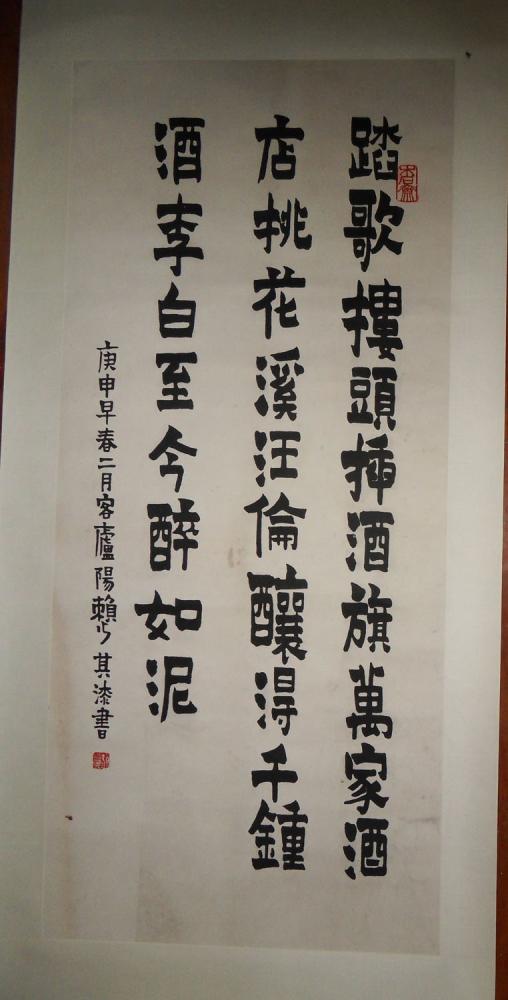 踏歌樓頭揷酒旗萬家酒
店桃花溪汪倫釀得千鍾
酒李白至今醉如泥
庚申早春二月客廬陽賴少其漆書